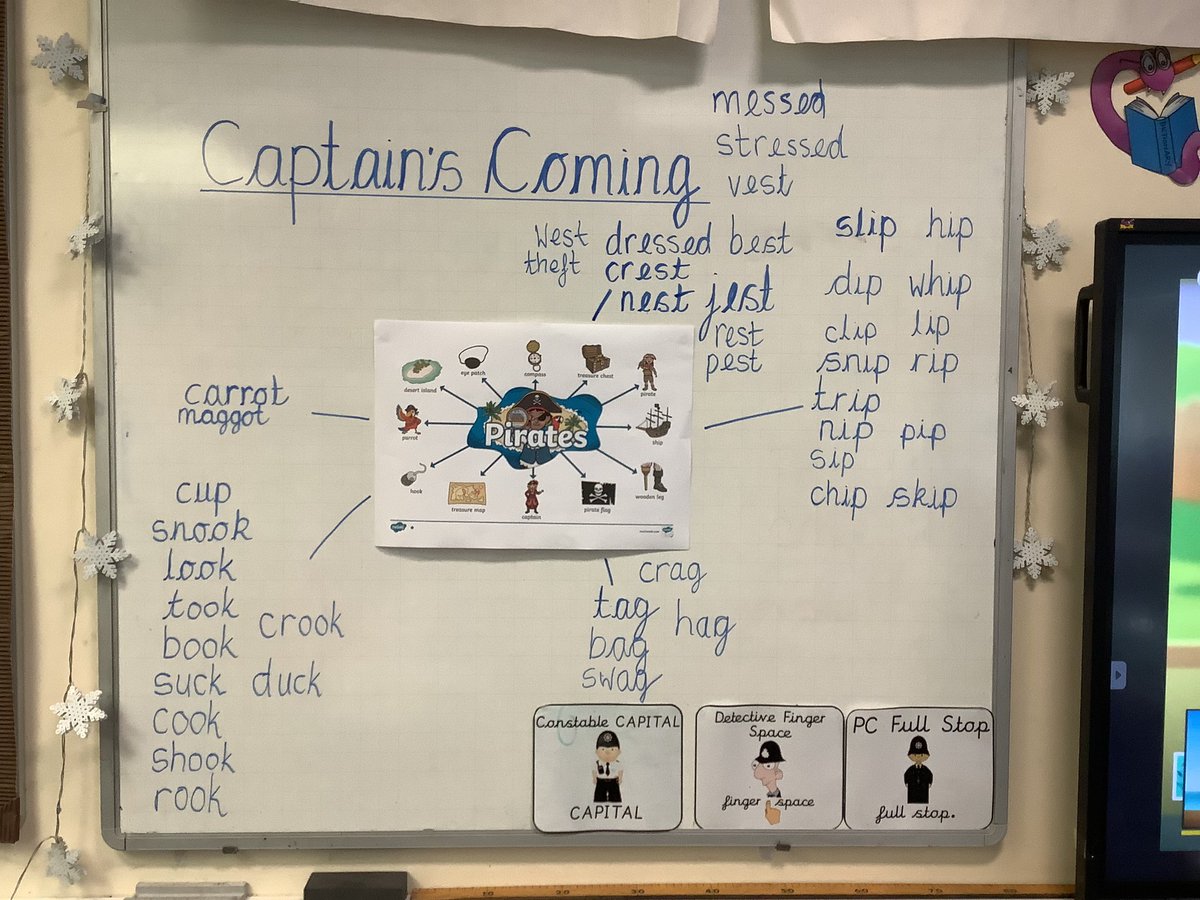 Captain's Coming
messed
stressed
vest
West dressed best
theft crest
nest jest
rest
pest
slip hip
dip whip
clip lip
snip rip
trip
nip pip
sip
chip skip
carrot
maggot
cup
snook
look
took
crook
book
suck duck
cook
shook
rook
desert island
eye patch
compass
treasure chest
pirate
parrot
Pirates
ship
hook
treasure map
captain
pirate flag
wooden leg
crag
tag hag
bag
swag
Constable CAPITAL
CAPITAL
Detective Finger
Space
finger space
PC Full Stop
full stop.
DICTIONARY